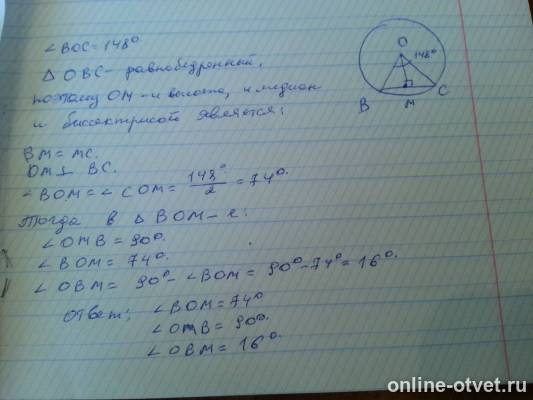 ∠BOC = 148°
△ OBC - равнобедренный,
поэтому OM - и высота, и медиан
и биссектрисой является:
BM = MC.
OM ⊥ BC.
∠BOM = ∠COM = 148°/2 = 74°.
Тогда в △ BOM-е:
∠OMB = 90°.
∠BOM = 74°.
∠OBM = 90° - ∠BOM = 90° - 74° = 16°.
Ответ: ∠BOM = 74°
∠OMB = 90°.
∠OBM = 16°.
O
148°
B M C
online-otvet.ru